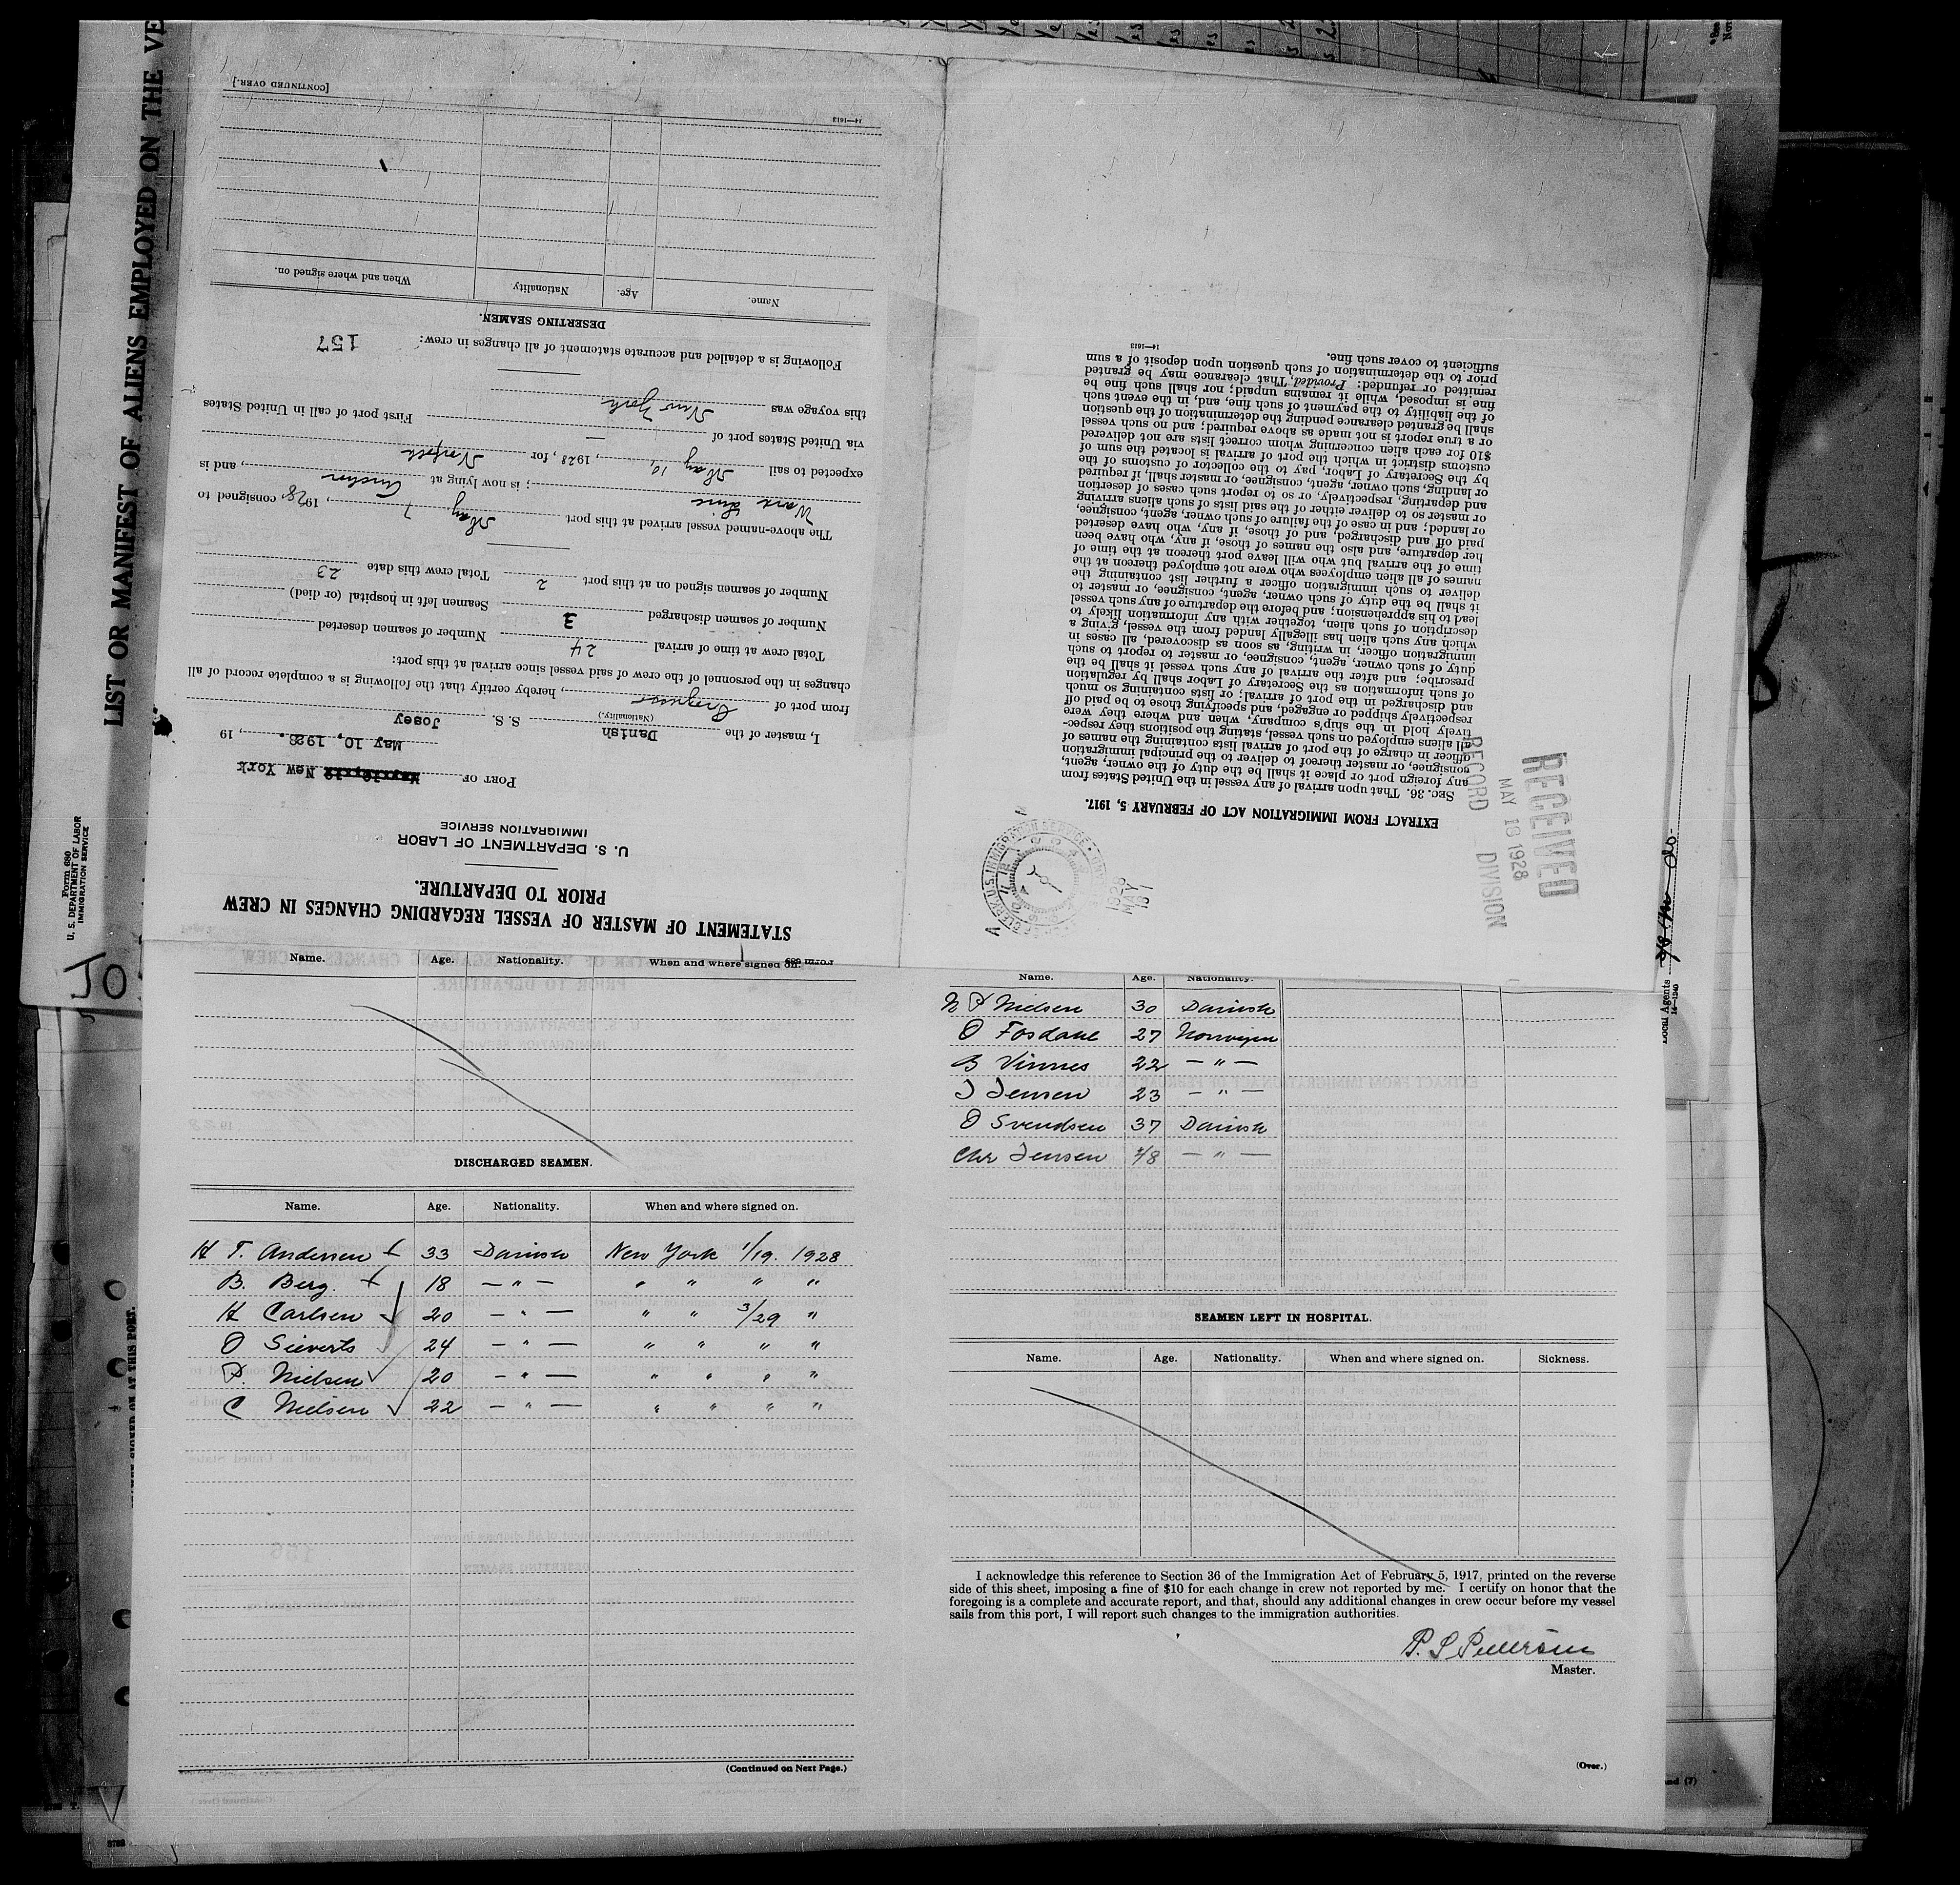 LIST OR MANIFEST OF ALIENS EMPLOYED ON THE VE
Form 680
U. S. DEPARTMENT OF LABOR
IMMIGRATION SERVICE
JO
Form 689
STATEMENT OF MASTER OF VESSEL REGARDING CHANGES IN CREW
PRIOR TO DEPARTURE.
U. S. DEPARTMENT OF LABOR
IMMIGRATION SERVICE
PORT OF New York
May 10, 1928. , 19
I, master of the Danish S. S. Josey
(Nationality.)
from port of Progreso, hereby certify that the following is a complete record of all
changes in the personnel of the crew of said vessel since arrival at this port:
Total crew at time of arrival 24 Number of seamen deserted
Number of seamen discharged 3 Seamen left in hospital (or died)
Number of seamen signed on at this port 2 Total crew this date 23
The above-named vessel arrived at this port May 7, 1928, consigned to
Ward Line; is now lying at Anchor, and is
expected to sail May 10, 1928, for Norfolk
via United States port of — First port of call in United States
this voyage was New York
Following is a detailed and accurate statement of all changes in crew: 157
DESERTING SEAMEN.
Name. Age. Nationality When and where signed on.
14—1613
[CONTINUED OVER.]
RECEIVED
MAY 18 1928
RECORD DIVISION
1928
MAY
EXTRACT FROM IMMIGRATION ACT OF FEBRUARY 5, 1917.
SEC. 36. That upon arrival of any vessel in the United States from
any foreign port or place it shall be the duty of the owner, agent,
consignee, or master thereof to deliver to the principal immigration
officer in charge of the port of arrival lists containing the names of
all aliens employed on such vessel, stating the positions they respec-
tively hold in the ship's company, when and where they were
respectively shipped or engaged, and specifying those to be paid off
and discharged in the port of arrival; or lists containing so much
of such information as the Secretary of Labor shall by regulation
prescribe; and after the arrival of any such vessel it shall be the
duty of such owner, agent, consignee, or master to report to such
immigration officer, in writing, as soon as discovered, all cases in
which any such alien has illegally landed from the vessel, giving a
description of such alien, together with any information likely to
lead to his apprehension; and before the departure of any such vessel
it shall be the duty of such owner, agent, consignee, or master to
deliver to such immigration officer a further list containing the
names of all alien employees who were not employed thereon at the
time of the arrival but who will leave port thereon at the time of
her departure, and also the names of those, if any, who have been
paid off and discharged, and of those, if any, who have deserted
or landed; and in case of the failure of such owner, agent, consignee,
or master so to deliver either of the said lists of such aliens arriving
and departing, respectively, or so to report such cases of desertion
or landing, such owner, agent, consignee, or master shall, if required
by the Secretary of Labor, pay to the collector of customs of the
customs district in which the port of arrival is located the sum of
$10 for each alien concerning whom correct lists are not delivered
or a true report is not made as above required; and no such vessel
shall be granted clearance pending the determination of the question
of the liability to the payment of such fine, and, in the event such
fine is imposed, while it remains unpaid; nor shall such fine be
remitted or refunded: Provided, That clearance may be granted
prior to the determination of such question upon deposit of a sum
sufficient to cover such fine.
14—1613
Name. Age. Nationality. When and where signed on.
DISCHARGED SEAMEN.
Name. Age. Nationality. When and where signed on.
H T. Andersen 33 Danish New York 1/19. 1928
B. Berg. 18 — " — " " " "
H Carlsen 20 — " — " " 3/29 "
O Sieverts 24 — " — " " " "
P. Nielsen 20 — " — " " " "
C Nielsen 22 — " — " " " "
(Continued on Next Page.)
Name. Age. Nationality.
N P Nielsen 30 Danish
O Fosdahl 27 Norwegen
B Vinnes 22 — " —
J Jensen 23 — " —
O Svendsen 37 Danish
Chr Jensen 48 — " —
SEAMEN LEFT IN HOSPITAL.
Name. Age. Nationality. When and where signed on. Sickness.
I acknowledge this reference to Section 36 of the Immigration Act of February 5, 1917, printed on the reverse
side of this sheet, imposing a fine of $10 for each change in crew not reported by me. I certify on honor that the
foregoing is a complete and accurate report, and that, should any additional changes in crew occur before my vessel
sails from this port, I will report such changes to the immigration authorities.
P. S Pedersen
Master.
(Over.)
Local Agents
14—1240
and (7)